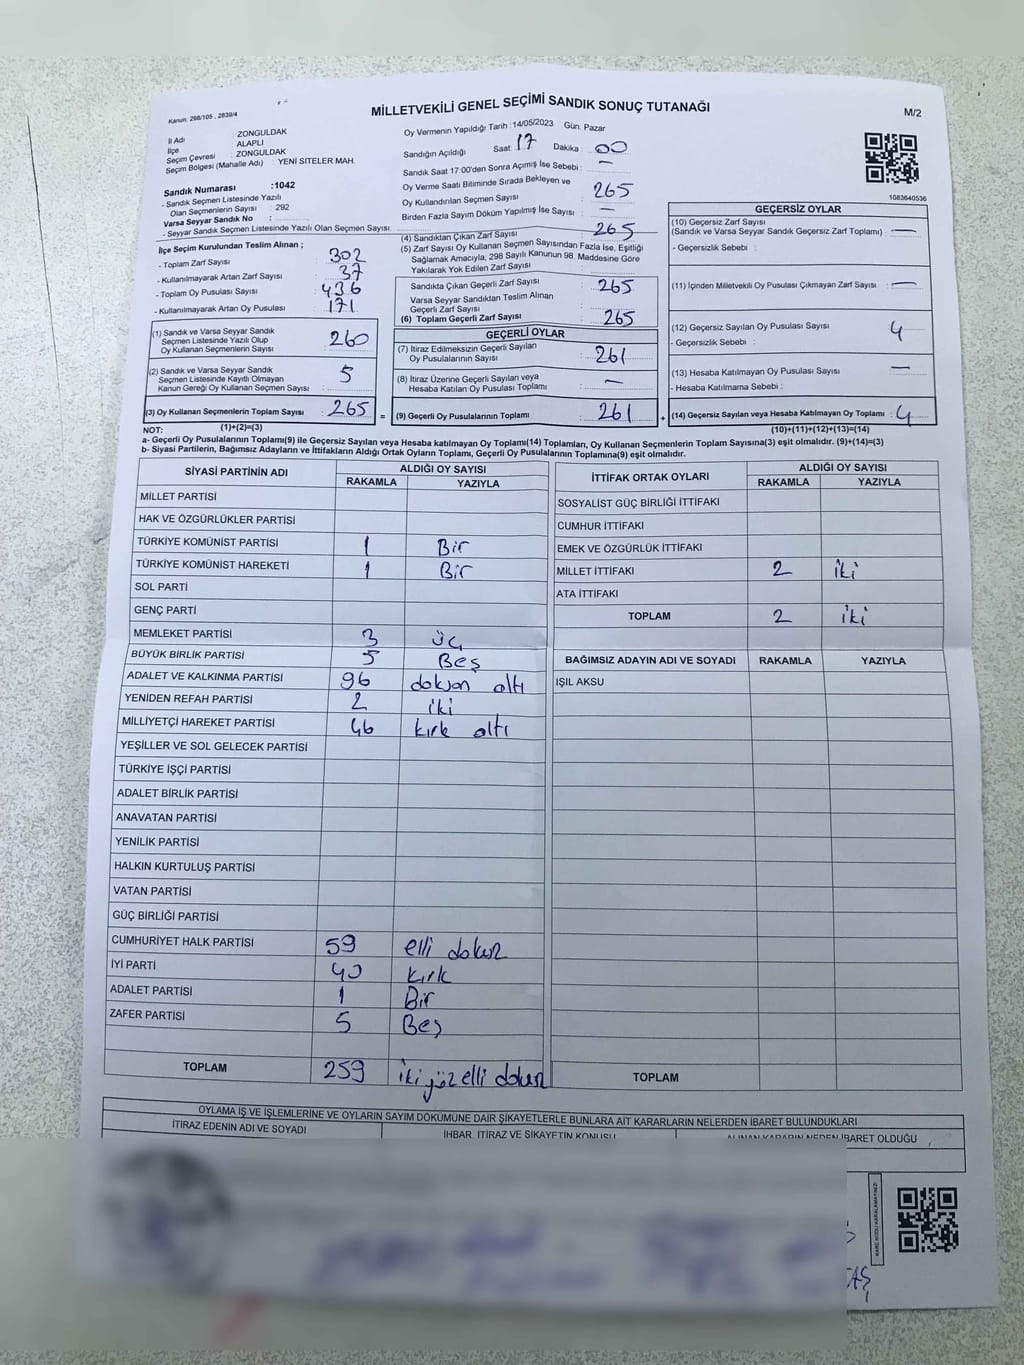 Kanun, 298/105 , 2839/4
MİLLETVEKİLİ GENEL SEÇİMİ SANDIK SONUÇ TUTANAĞI
M/2
İl Adı : ZONGULDAK
İlçe : ALAPLI
Seçim Çevresi : ZONGULDAK
Seçim Bölgesi (Mahalle Adı) : YENİ SİTELER MAH.
Sandık Numarası :1042
- Sandık Seçmen Listesinde Yazılı
Olan Seçmenlerin Sayısı : 292
Varsa Seyyar Sandık No :
- Seyyar Sandık Seçmen Listesinde Yazılı Olan Seçmen Sayısı
İlçe Seçim Kurulundan Teslim Alınan ;
- Toplam Zarf Sayısı : 302
- Kullanılmayarak Artan Zarf Sayısı : 37
- Toplam Oy Pusulası Sayısı : 436
- Kullanılmayarak Artan Oy Pusulası : 171
(1) Sandık ve Varsa Seyyar Sandık
Seçmen Listesinde Yazılı Olup
Oy Kullanan Seçmenlerin Sayısı : 260
(2) Sandık ve Varsa Seyyar Sandık
Seçmen Listesinde Kayıtlı Olmayan
Kanun Gereği Oy Kullanan Seçmen Sayısı : 5
(3) Oy Kullanan Seçmenlerin Toplam Sayısı : 265
(1)+(2)=(3)
Oy Vermenin Yapıldığı Tarih :14/05/2023 Gün: Pazar
Sandığın Açıldığı Saat: 17 Dakika : 00
Sandık Saat 17:00'den Sonra Açımış İse Sebebi : —
Oy Verme Saati Bitiminde Sırada Bekleyen ve
Oy Kullandırılan Seçmen Sayısı : 265
Birden Fazla Sayım Döküm Yapılmış İse Sayısı : —
(4) Sandıktan Çıkan Zarf Sayısı : 265
(5) Zarf Sayısı Oy Kullanan Seçmen Sayısından Fazla İse, Eşitliği
Sağlamak Amacıyla, 298 Sayılı Kanunun 98. Maddesine Göre
Yakılarak Yok Edilen Zarf Sayısı :
Sandıkta Çıkan Geçerli Zarf Sayısı : 265
Varsa Seyyar Sandıktan Teslim Alınan
Geçerli Zarf Sayısı :
(6) Toplam Geçerli Zarf Sayısı : 265
GEÇERLİ OYLAR
(7) İtiraz Edilmeksizin Geçerli Sayılan
Oy Pusulalarının Sayısı : 261
(8) İtiraz Üzerine Geçerli Sayılan veya
Hesaba Katılan Oy Pusulası Toplamı : —
= (9) Geçerli Oy Pusulalarının Toplamı : 261
1083640536
GEÇERSİZ OYLAR
(10) Geçersiz Zarf Sayısı
(Sandık ve Varsa Seyyar Sandık Geçersiz Zarf Toplamı) : —
- Geçersizlik Sebebi :
(11) İçinden Milletvekili Oy Pusulası Çıkmayan Zarf Sayısı : —
(12) Geçersiz Sayılan Oy Pusulası Sayısı : 4
- Geçersizlik Sebebi :
(13) Hesaba Katılmayan Oy Pusulası Sayısı : —
- Hesaba Katılmama Sebebi :
+ (14) Geçersiz Sayılan veya Hesaba Katılmayan Oy Toplamı : 4
(10)+(11)+(12)+(13)=(14)
NOT:
a- Geçerli Oy Pusulalarının Toplamı(9) ile Geçersiz Sayılan veya Hesaba katılmayan Oy Toplamı(14) Toplamları, Oy Kullanan Seçmenlerin Toplam Sayısına(3) eşit olmalıdır. (9)+(14)=(3)
b- Siyasi Partilerin, Bağımsız Adayların ve İttifakların Aldığı Ortak Oyların Toplamı, Geçerli Oy Pusulalarının Toplamına(9) eşit olmalıdır.
SİYASİ PARTİNİN ADI ALDIĞI OY SAYISI
RAKAMLA YAZIYLA
MİLLET PARTİSİ
HAK VE ÖZGÜRLÜKLER PARTİSİ
TÜRKİYE KOMÜNİST PARTİSİ 1 Bir
TÜRKİYE KOMÜNİST HAREKETİ 1 Bir
SOL PARTİ
GENÇ PARTİ
MEMLEKET PARTİSİ 3 üç
BÜYÜK BİRLİK PARTİSİ 5 Beş
ADALET VE KALKINMA PARTİSİ 96 doksan altı
YENİDEN REFAH PARTİSİ 2 iki
MİLLİYETÇİ HAREKET PARTİSİ 46 kırk altı
YEŞİLLER VE SOL GELECEK PARTİSİ
TÜRKİYE İŞÇİ PARTİSİ
ADALET BİRLİK PARTİSİ
ANAVATAN PARTİSİ
YENİLİK PARTİSİ
HALKIN KURTULUŞ PARTİSİ
VATAN PARTİSİ
GÜÇ BİRLİĞİ PARTİSİ
CUMHURİYET HALK PARTİSİ 59 elli dokuz
İYİ PARTİ 40 kırk
ADALET PARTİSİ 1 Bir
ZAFER PARTİSİ 5 Beş
TOPLAM 259 iki yüz elli dokuz
İTTİFAK ORTAK OYLARI ALDIĞI OY SAYISI
RAKAMLA YAZIYLA
SOSYALİST GÜÇ BİRLİĞİ İTTİFAKI
CUMHUR İTTİFAKI
EMEK VE ÖZGÜRLÜK İTTİFAKI
MİLLET İTTİFAKI 2 iki
ATA İTTİFAKI
TOPLAM 2 iki
BAĞIMSIZ ADAYIN ADI VE SOYADI RAKAMLA YAZIYLA
IŞIL AKSU
TOPLAM
OYLAMA İŞ VE İŞLEMLERİNE VE OYLARIN SAYIM DÖKÜMÜNE DAİR ŞİKAYETLERLE BUNLARA AİT KARARLARIN NELERDEN İBARET BULUNDUKLARI
İTİRAZ EDENİN ADI VE SOYADI İHBAR, İTİRAZ VE ŞİKAYETİN KONUSU ALINAN KARARIN NEDEN İBARET OLDUĞU